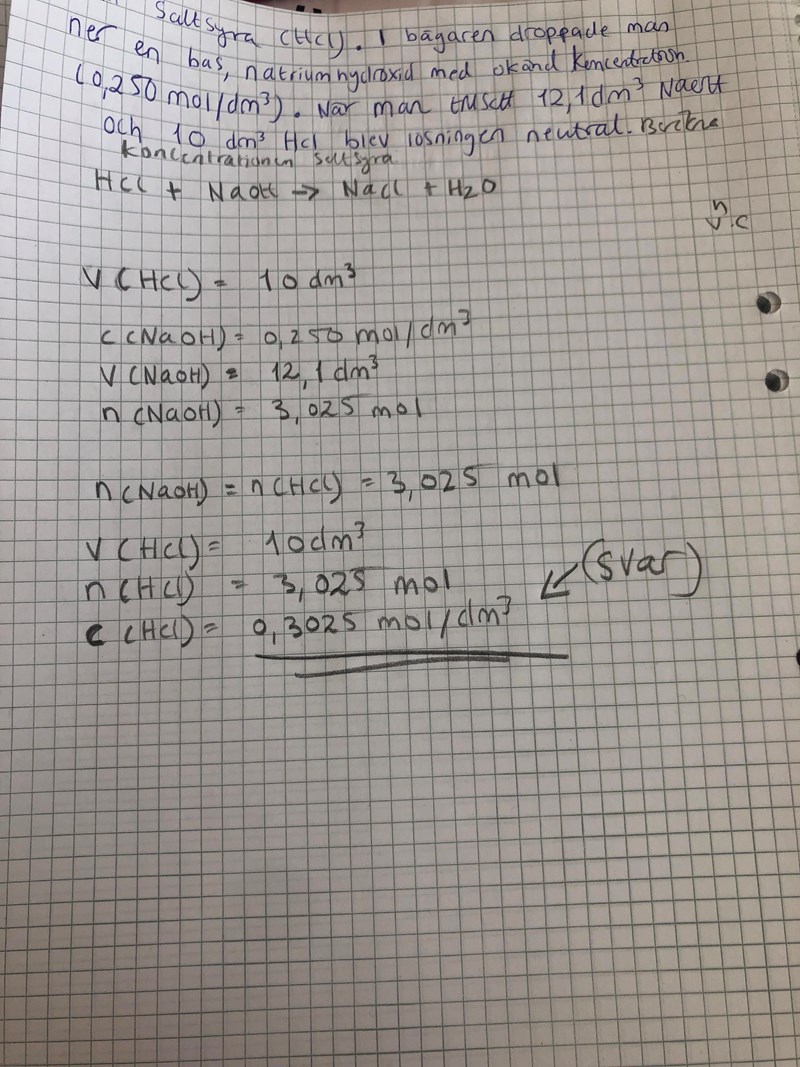 Saltsyra (HCl). I bägaren droppade man
ner en bas, natriumhydroxid med okänd koncentration
(0,250 mol/dm³). När man tillsatt 12,1 dm³ NaOH
och 10 dm³ HCl blev lösningen neutral. Beräkna
koncentrationen saltsyra
HCl + NaOH → NaCl + H2O
n
v.c
V (HCl) = 10 dm³
C (NaOH) = 0,250 mol/dm³
V (NaOH) = 12,1 dm³
n (NaOH) = 3,025 mol
n (NaOH) = n (HCl) = 3,025 mol
V (HCl) = 10 dm³
n (HCl) = 3,025 mol
(svar)
C (HCl) = 0,3025 mol/dm³